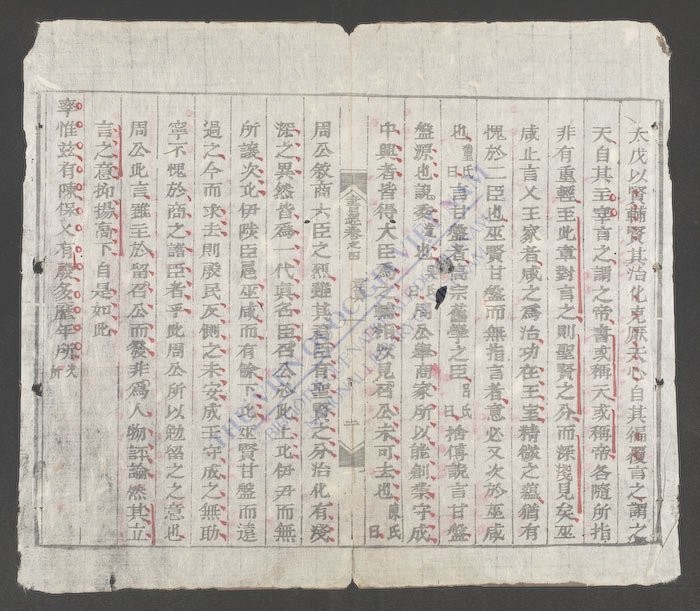 太戊以賢輔賢其治化克厭天心自其徧覆言之謂之
天自其主宰言之謂之帝書或稱天或稱帝各隨所指
非有重輕至此章對言之則聖賢之分而深淺見矣巫
咸止言乂王家者咸之爲治功在王室精微之蘊猶有
愧於二臣也巫賢甘盤而無指言者意必又次於巫咸
也董氏曰言甘盤者高宗舊學之臣呂氏曰捨傅說言甘盤
盤源也說委也吳氏曰周公舉商家所以能創業守成
中興者皆得大臣爲輔相以見召公未可去也陳氏曰
書經卷之四
二
周公敘商六臣之烈雖其君臣有聖賢之分治化有淺
深之異然皆爲一代眞名臣召公於此上比伊尹而無
所讓次比伊陟臣扈巫咸而有餘下比巫賢甘盤而遠
過之今而求去則殷民反側之未安成王守成之無助
寧不愧於商之諸臣者乎此周公所以勉留之之意也
周公此言雖主於留召公而發非爲人物評論然其立
言之意抑揚高下自是如此
率惟茲有陳保乂有殷多歷年所
THƯ VIỆN QUỐC GIA VIỆT NAM